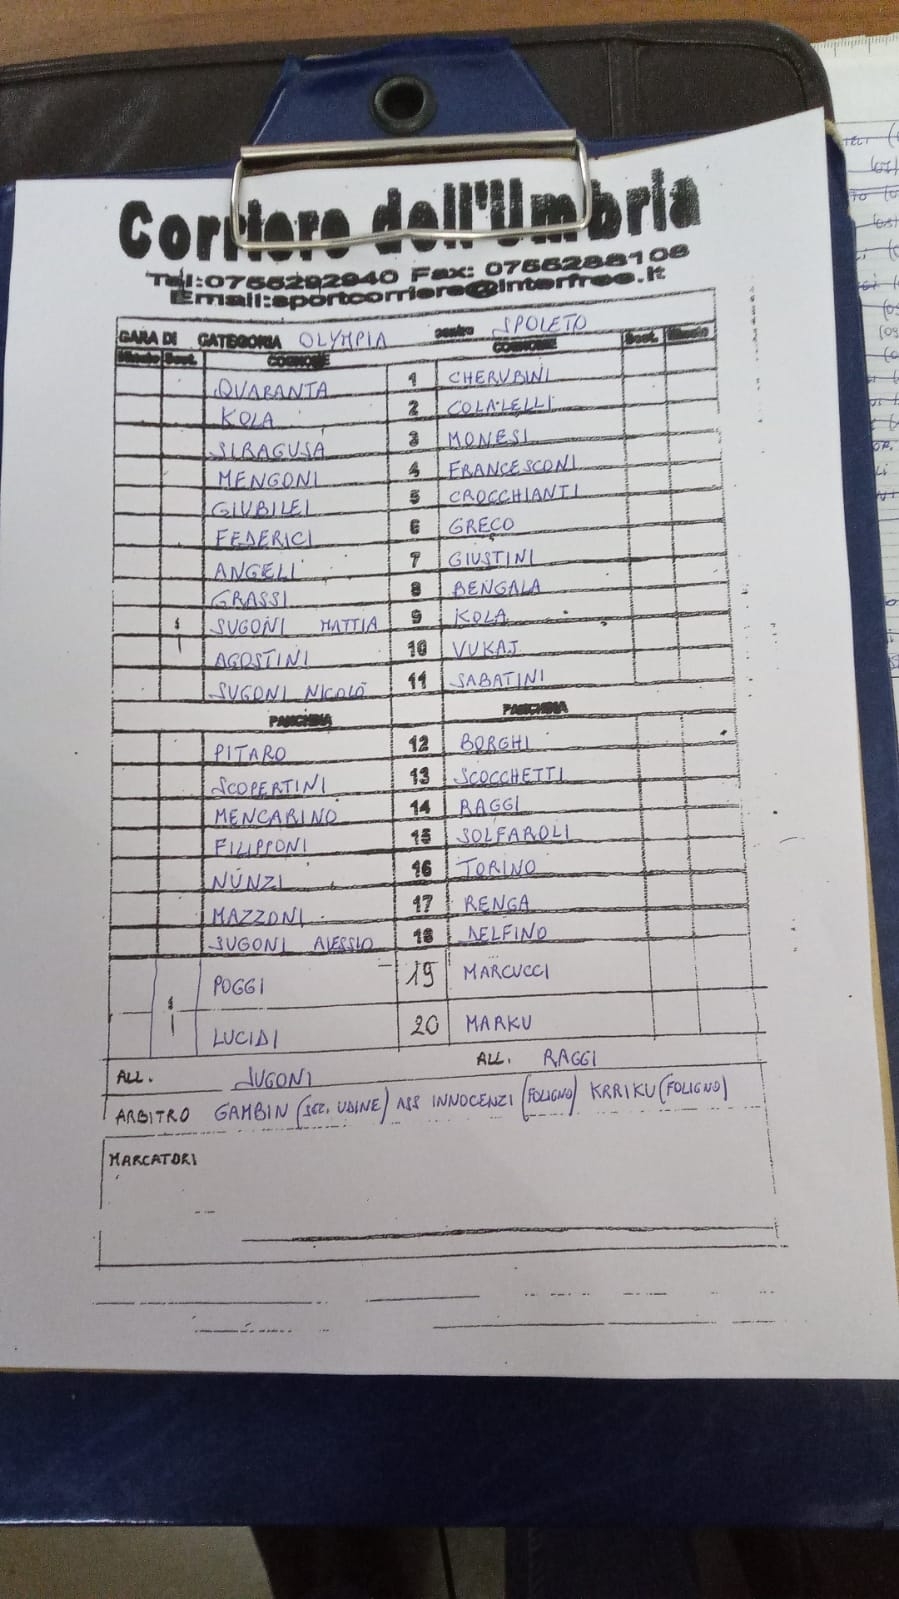 Corriere dell'Umbria
Tel:0755292940 Fax: 0755288108
Email:sportcorriere@interfree.it
GARA DI CATEGORIA OLYMPIA contro SPOLETO
Minuto Sost. COGNOME COGNOME Sost. Minuto
QUARANTA 1 CHERUBINI
KOLA 2 COLALELLI
SIRAGUSA 3 MONESI
MENGONI 4 FRANCESCONI
GIUBILEI 5 CROCCHIANTI
FEDERICI 6 GRECO
ANGELI 7 GIUSTINI
GRASSI 8 BENGALA
SUGONI MATTIA 9 KOLA
AGOSTINI 10 VUKAJ
SUGONI NICOLÒ 11 SABATINI
PANCHINA PANCHINA
PITARO 12 BORGHI
SCOPERTINI 13 SCOCCHETTI
MENCARINO 14 RAGGI
FILIPPONI 15 SOLFAROLI
NUNZI 16 TORINO
MAZZONI 17 RENGA
SUGONI ALESSIO 18 DELFINO
POGGI 19 MARCUCCI
LUCIDI 20 MARKU
ALL. SUGONI ALL. RAGGI
ARBITRO GAMBIN (SEZ. UDINE) ASS INNOCENZI (FOLIGNO) KRRIKU (FOLIGNO)
MARCATORI